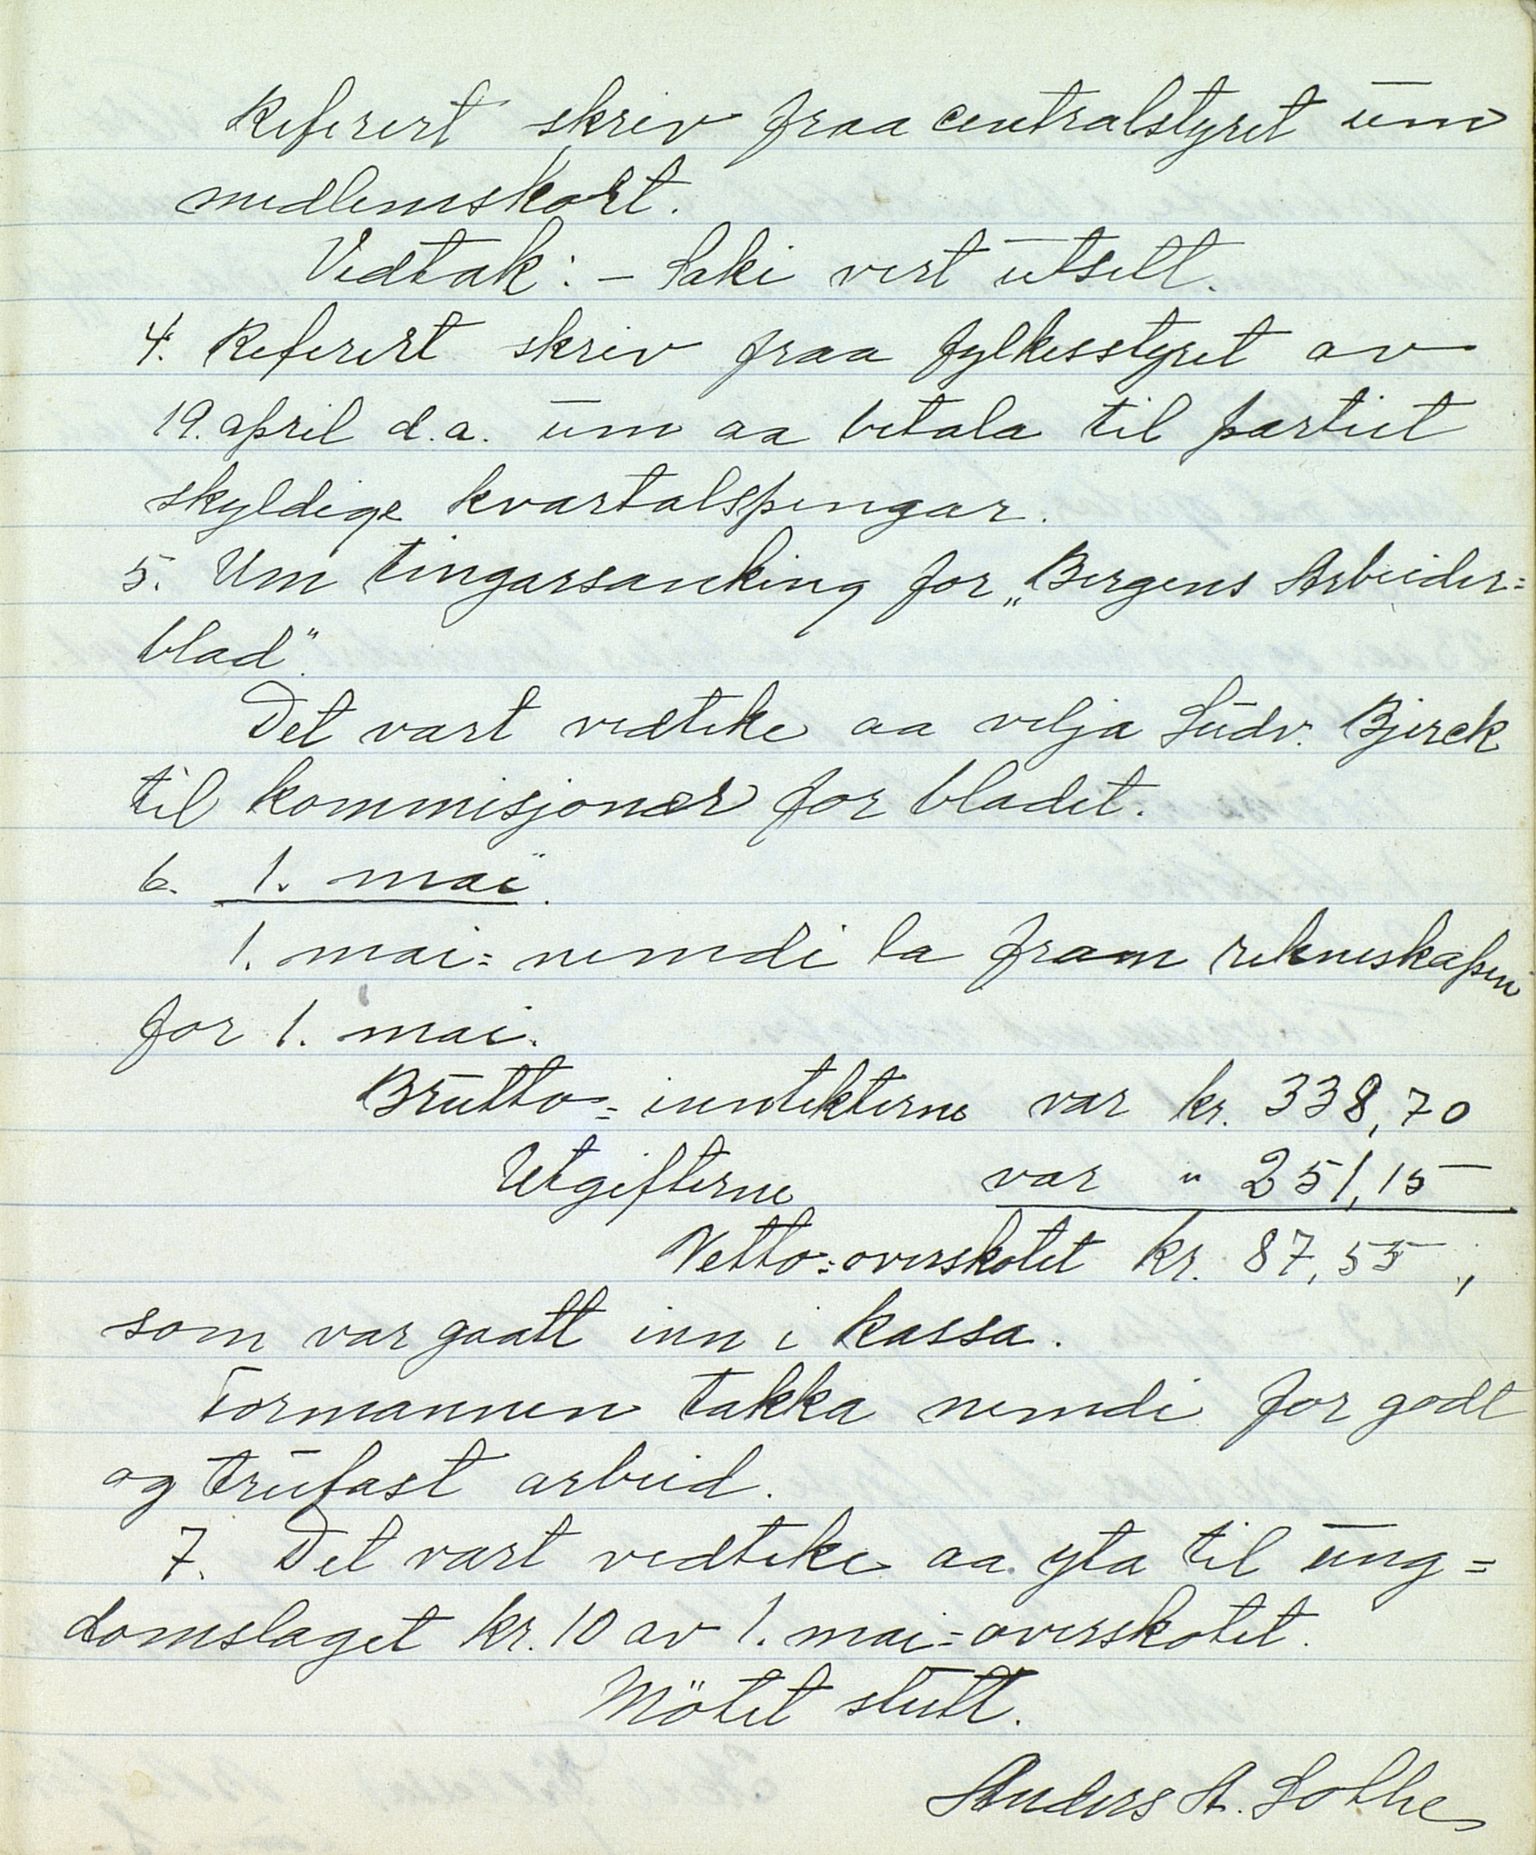 Referert skriv fraa centralstyret um
medlemskort.
Vedtak: – Saki vert utsett.
4. Referert skriv fraa fylkesstyret av
19. april d.a. um aa betala til partiet
skyldige kvartalspengar.
5. Um tingarsanking for „Bergens Arbeider=
blad".
Det vart vedteke aa velja Ludv. Bjerck
til kommisjonær for bladet.
6. 1. mai.
1. mai=nemdi la fram rekneskapen
for 1. mai.
Brutto=inntekterne var kr. 338,70
Utgifterne var " 251,15
Netto=overskotet kr. 87,55,
som var gaatt inn i kassa.
Formannen takka nemdi for godt
og trufast arbeid.
7. Det vart vedteke aa yta til ung=
domslaget kr. 10 av 1. mai=overskotet.
Mötet slutt.
Anders A. Lothe